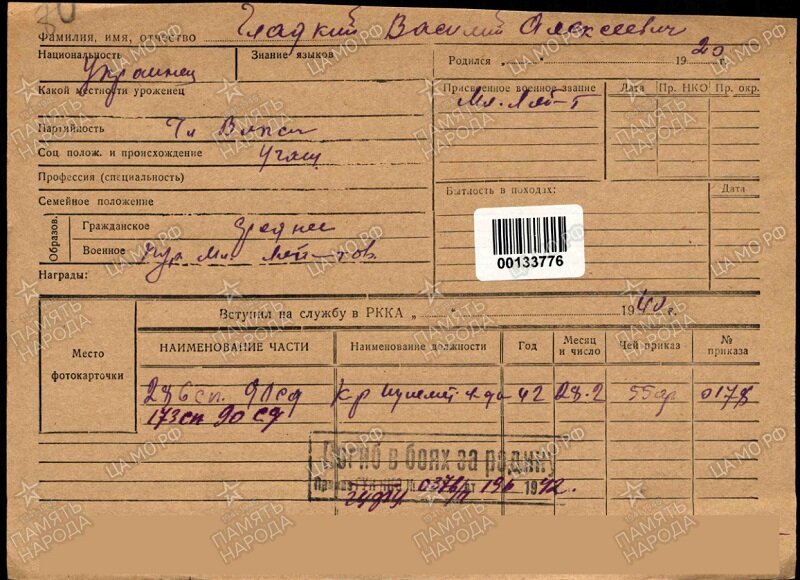 80
Фамилия, имя, отчество Гладкий Василий Алексеевич
Национальность Украинец
Знание языков
Родился „ “ 1920 г.
Какой местности уроженец
Присвоенное военное звание Дата Пр. НКО Пр. окр.
Мл. Лей-т
Партийность Чл ВЛКСМ
Соц полож. и происхождение Учащ
Профессия (специальность)
Семейное положение
Бытность в походах: Дата
Образов. Гражданское Среднее
Военное Кур Мл Лей-тов
Награды:
00133776
Вступил на службу в РККА „ “ 1940 г.
Место фотокарточки
НАИМЕНОВАНИЕ ЧАСТИ Наименование должности Год Месяц и число Чей приказ № приказа
286 сп. 90 сд к-р пулемет. в-да 42 28.2 55 ар 0178
173 сп 90 сд
Погиб в боях за родину
№ 0376/п от 196 1942.
ПАМЯТЬ НАРОДА
ЦАМО.РФ